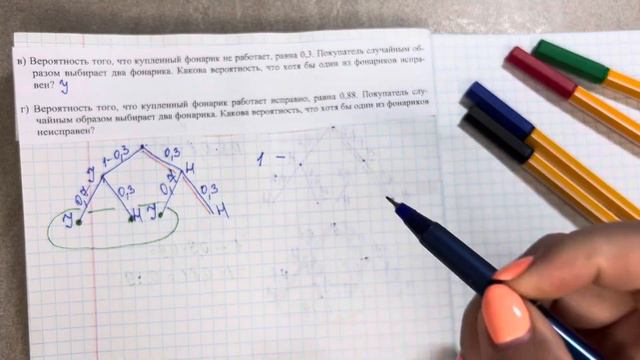 в) Вероятность того, что купленный фонарик не работает, равна 0,3. Покупатель случайным об-
разом выбирает два фонарика. Какова вероятность, что хотя бы один из фонариков испра-
вен? У
г) Вероятность того, что купленный фонарик работает исправно, равна 0,88. Покупатель слу-
чайным образом выбирает два фонарика. Какова вероятность, что хотя бы один из фонариков
неисправен?
1-0,3 0,3 1 -
У Н
0,7 0,3 0,7 0,3
У Н У Н